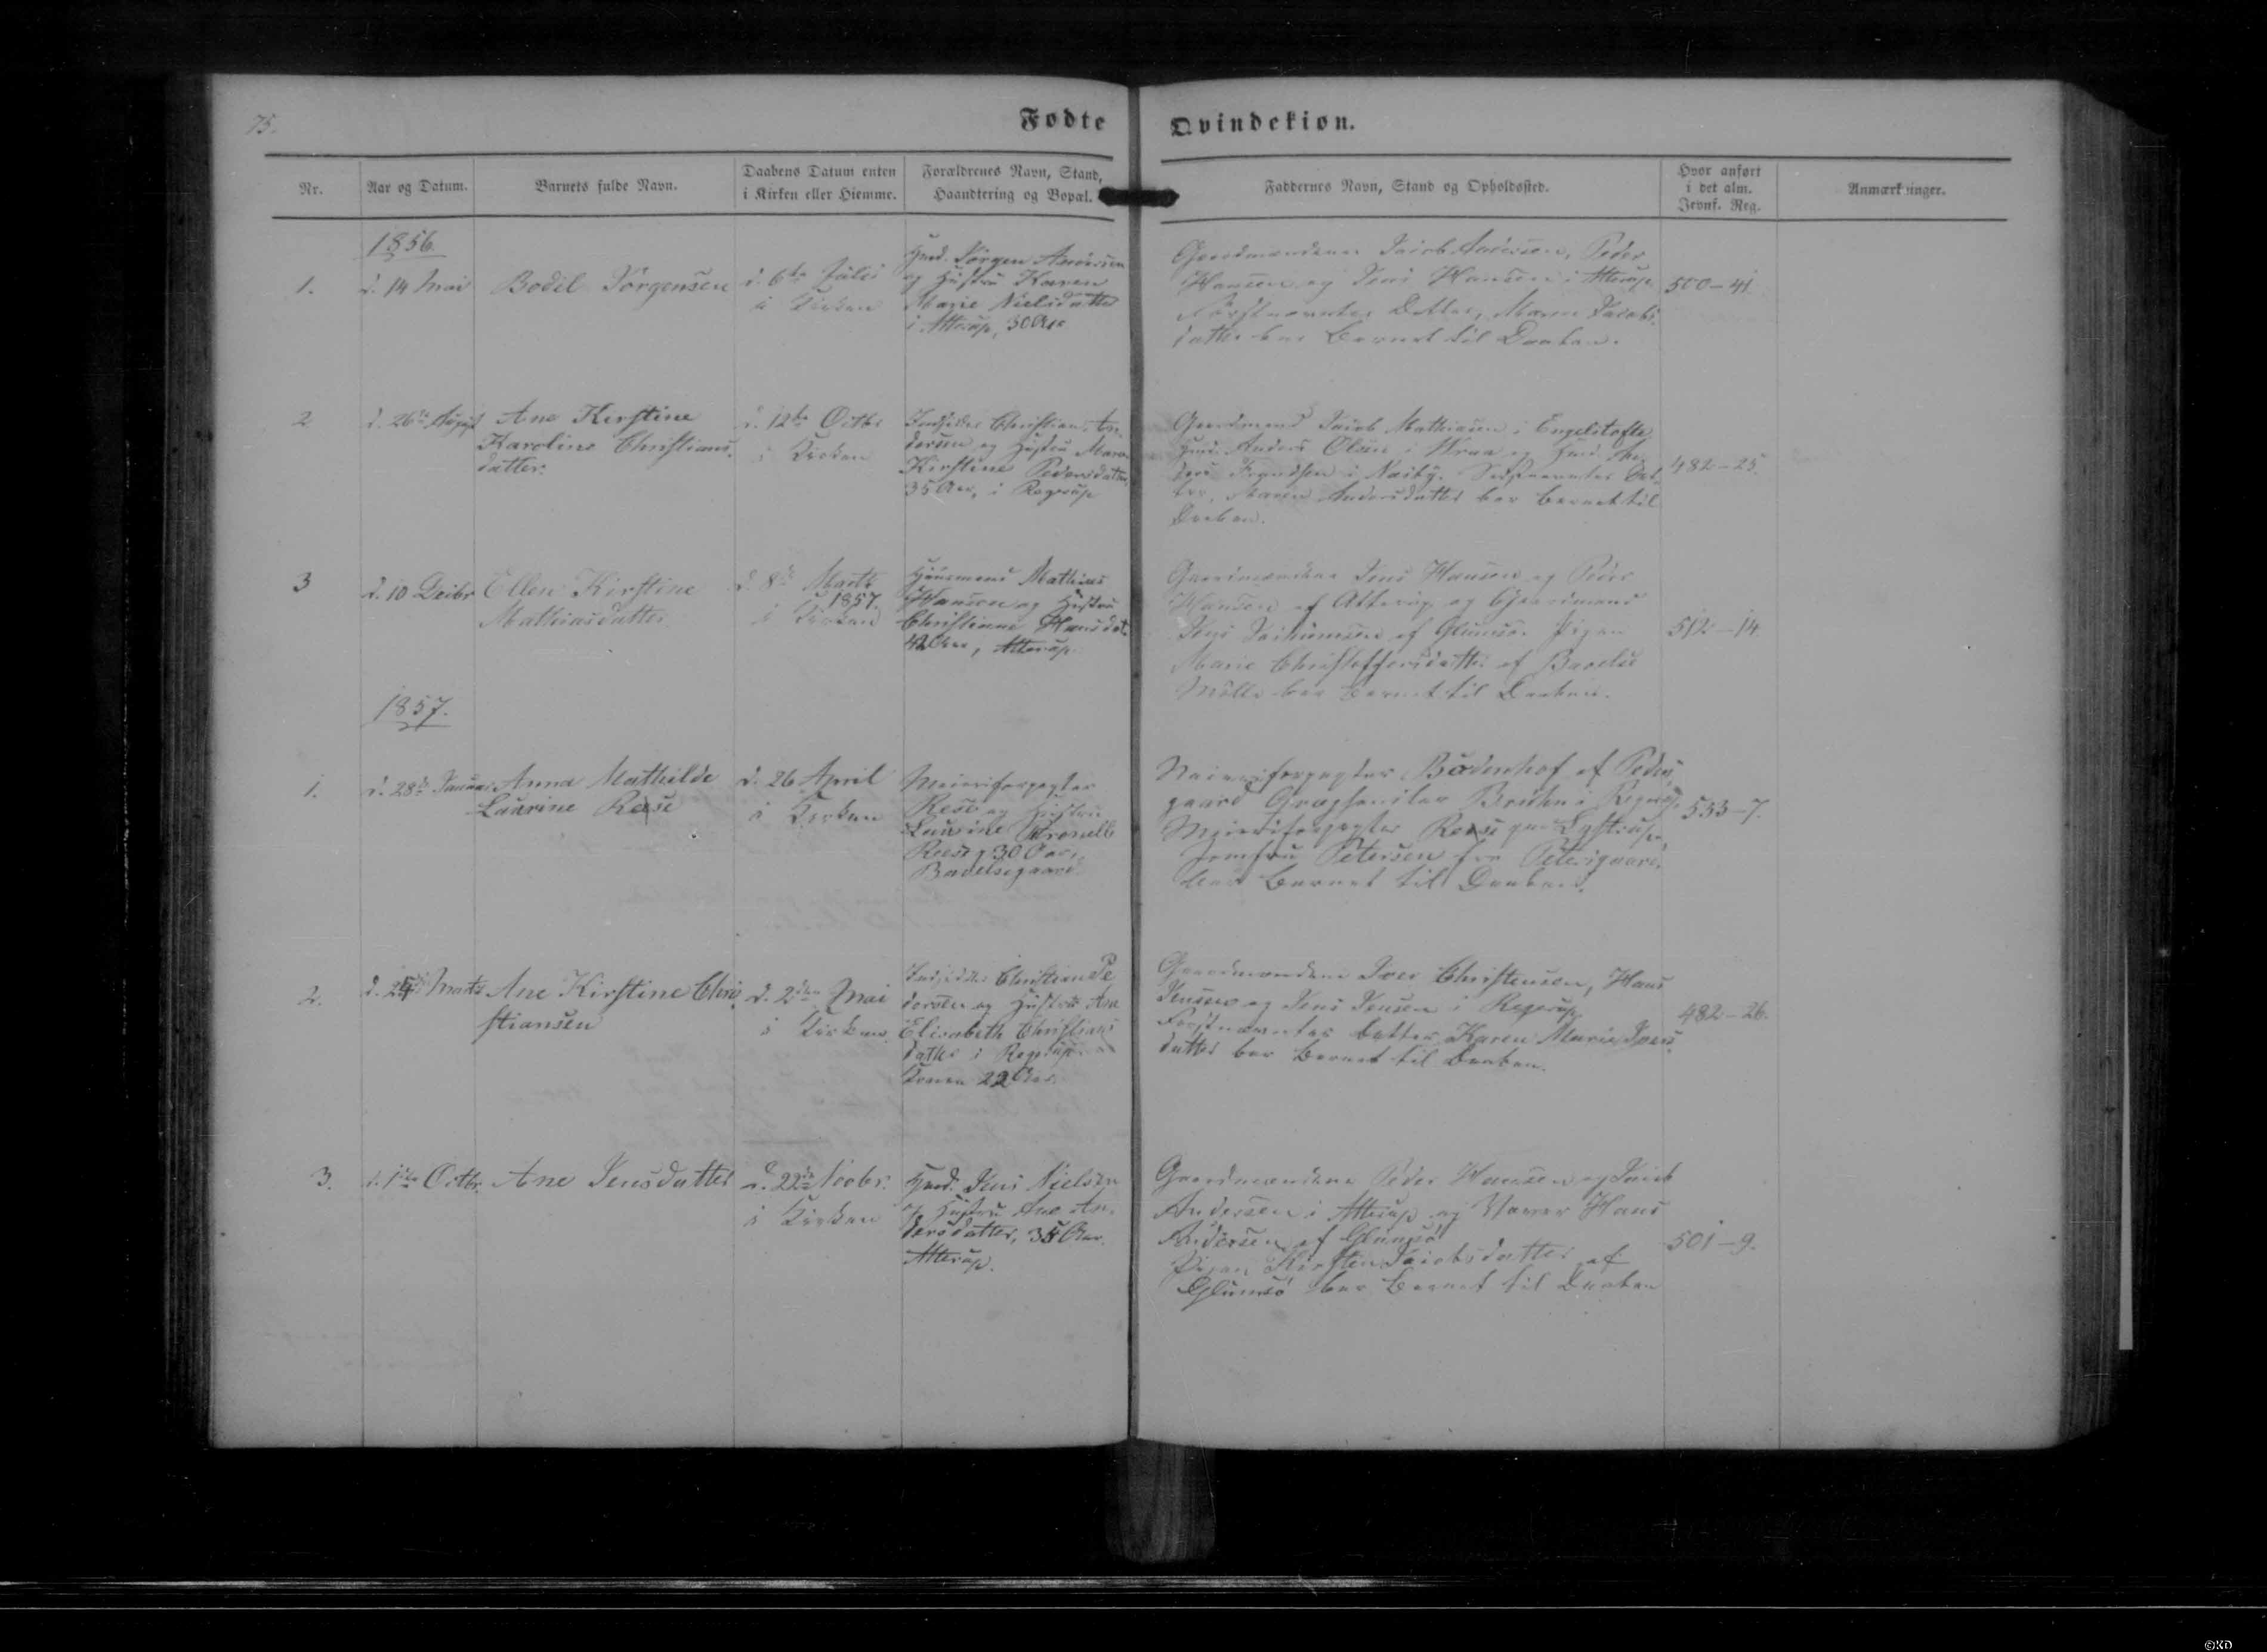 75.
Fødte Qvindekiøn.
Nr.
Aar og Datum.
Barnets fulde Navn.
Daabens Datum enten
i Kirken eller Hiemme.
Forældrenes Navn, Stand,
Haandtering og Bopæl.
Faddernes Navn, Stand og Opholdssted.
Hvor anført
i det alm.
Jevnf. Reg.
Anmærkninger.
1856.
1.
d. 14 Mai
Bodil Jörgensen
d. 6te Julii
i Kirken
Huusmd. Jörgen Andersen
og Hustru Karen
Marie Nielsdatter
i Atterup, 30 Aar
Gaardmændene Jacob Andersen, Peder
Hansen og Jens Hansen i Atterup
Förstnævntes Datter, Maren Jacobs-
datter bar Barnet til Daaben.
500-41
2
d. 26de August
Ane Kirstine
Karoline Christians-
datter.
d. 12te Octbr
i Kirken
Indsidder Christian An-
dersen og Hustru Maren
Kirstine Pedersdatter,
35 Aar, i Regerup
Gaardmand Jacob Mathiasen i Engelstofte
Huusmd. Anders Olsen i Wraa og Huusmd.
Frandsen i Næsby. Sidstnævntes Dat-
ter, Maren Andersdatter bar Barnet til
Daaben.
482-25.
3
d. 10 Decbr
Ellen Kirstine
Mathiasdatter
d. 8de Marts
1857.
i Kirken
Huusmand Mathias
Hansen og Hustru
Christiane Hansdat.
42 Aar, Atterup.
Gaardmændene Jens Hansen og Peder
Hansen af Atterup og Gaardmand
Jens af Glumsö. Pigen
Marie Christoffersdatter af Bavelse
Mölle bar Barnet til Daaben.
512-14
1857.
1.
d. 28de Januar
Anna Mathilde
Laurine Reese
d. 26 April
i Kirken
Meieriforpagter
Reese og Hustru
Laurine Petronelle
Reese, 30 Aar,
Bavelsegaard
Meieriforpagter Bödenhof af Peders-
gaard i Regerup,
Meieriforpagter Reese paa Lystrup,
Jomfru Petersen fra Petersgaard,
bar Barnet til Daaben.
533-7.
2.
d. 25de Marts
Ane Kirstine Chri-
stiansen
d. 2den Mai
i Kirken
Indsidder Christian Pe-
dersen og Hustru Ane
Elisabeth Christians-
datter i Regerup.
Konen 22 Aar.
Gaardmændene Iver Christensen, Hans
Jensen og Jens Jensen i Regerup
Förstnævntes Datter Karen Marie Ivers-
datter bar Barnet til Daaben.
482-26.
3.
d. 1ste Octbr.
Ane Jensdatter
d. 22de Novbr.
i Kirken
Huusmd. Jens Nielsen
og Hustru Ane An-
dersdatter, 35 Aar.
Atterup.
Gaardmændene Peder Hansen og Jacob
Andersen i Atterup og Hans
Andersen af Glumsö
Pigen Kirsten Jacobsdatter af
Glumsö bar Barnet til Daaben
501-9.
©KD